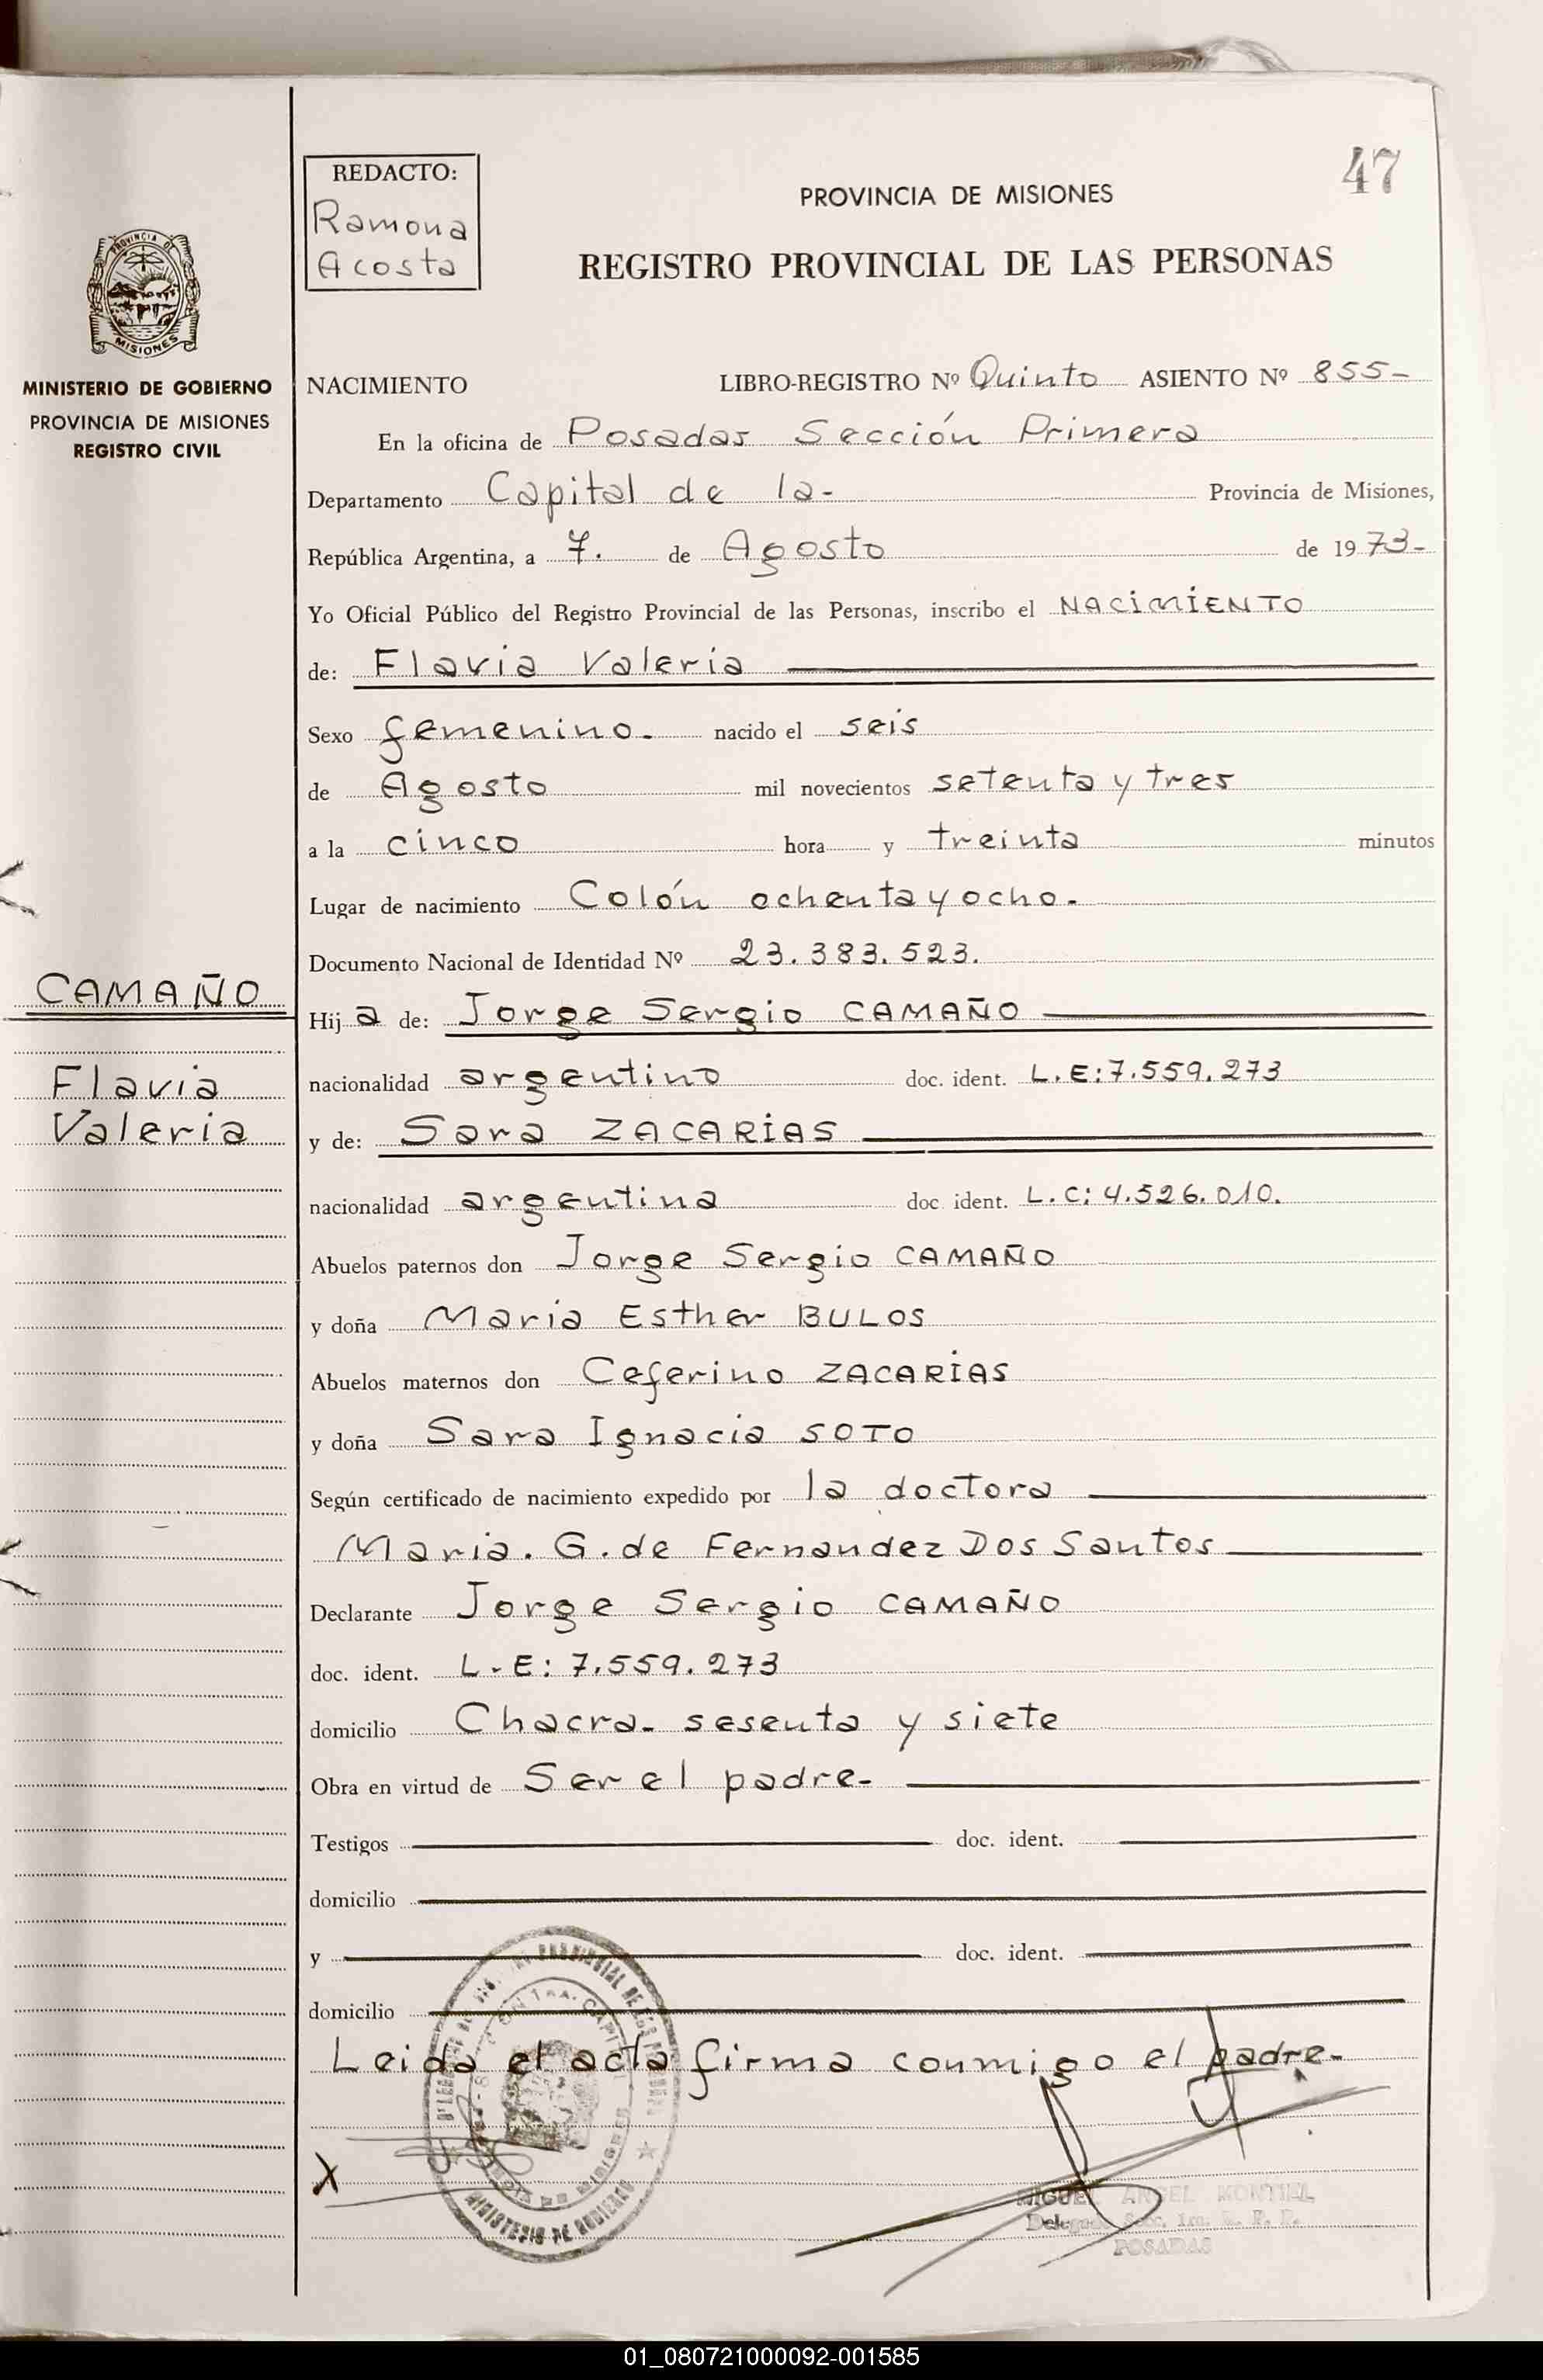 47
REDACTO:
Ramona
Acosta
PROVINCIA DE MISIONES
REGISTRO PROVINCIAL DE LAS PERSONAS
PROVINCIA DE
MISIONES
MINISTERIO DE GOBIERNO
PROVINCIA DE MISIONES
REGISTRO CIVIL
NACIMIENTO LIBRO-REGISTRO Nº Quinto ASIENTO Nº 855-
En la oficina de Posadas Sección Primera
Departamento Capital de la- Provincia de Misiones,
República Argentina, a 7. de Agosto de 1973-
Yo Oficial Público del Registro Provincial de las Personas, inscribo el NACIMIENTO
de: Flavia Valeria
Sexo femenino. nacido el seis
de Agosto mil novecientos setenta y tres
a la cinco hora y treinta minutos
Lugar de nacimiento Colón ochenta y ocho.
Documento Nacional de Identidad Nº 23.383.523.
CAMAÑO
Flavia
Valeria
Hija de: Jorge Sergio CAMAÑO
nacionalidad argentino doc. ident. L.E:7.559.273
y de: Sara ZACARIAS
nacionalidad argentina doc. ident. L.C:4.526.010.
Abuelos paternos don Jorge Sergio CAMAÑO
y doña Maria Esther BULOS
Abuelos maternos don Ceferino ZACARIAS
y doña Sara Ignacia SOTO
Según certificado de nacimiento expedido por la doctora
Maria. G. de Fernandez Dos Santos
Declarante Jorge Sergio CAMAÑO
doc. ident. L.E: 7.559.273
domicilio Chacra- sesenta y siete
Obra en virtud de Ser el padre-
Testigos doc. ident.
domicilio
y doc. ident.
domicilio
Leida el acta firma conmigo el padre-
X
MINISTERIO DE GOBIERNO
MIGUEL ANGEL MONTIEL
Delegado Secc. 1ra. R. P. P.
POSADAS
01_080721000092-001585